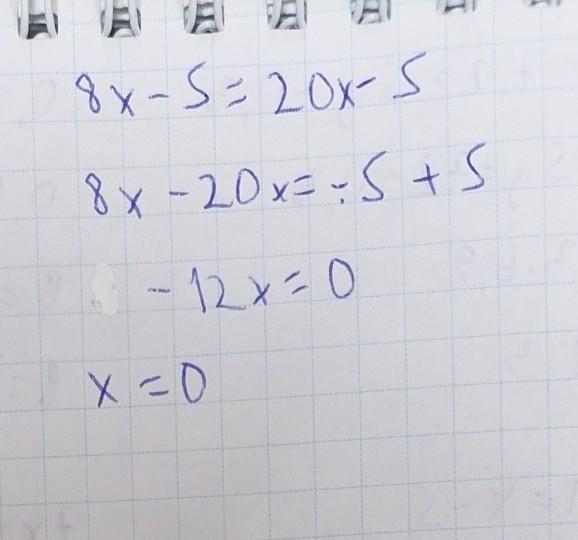 8x - 5 = 20x - 5
8x - 20x = -5 + 5
-12x = 0
x = 0